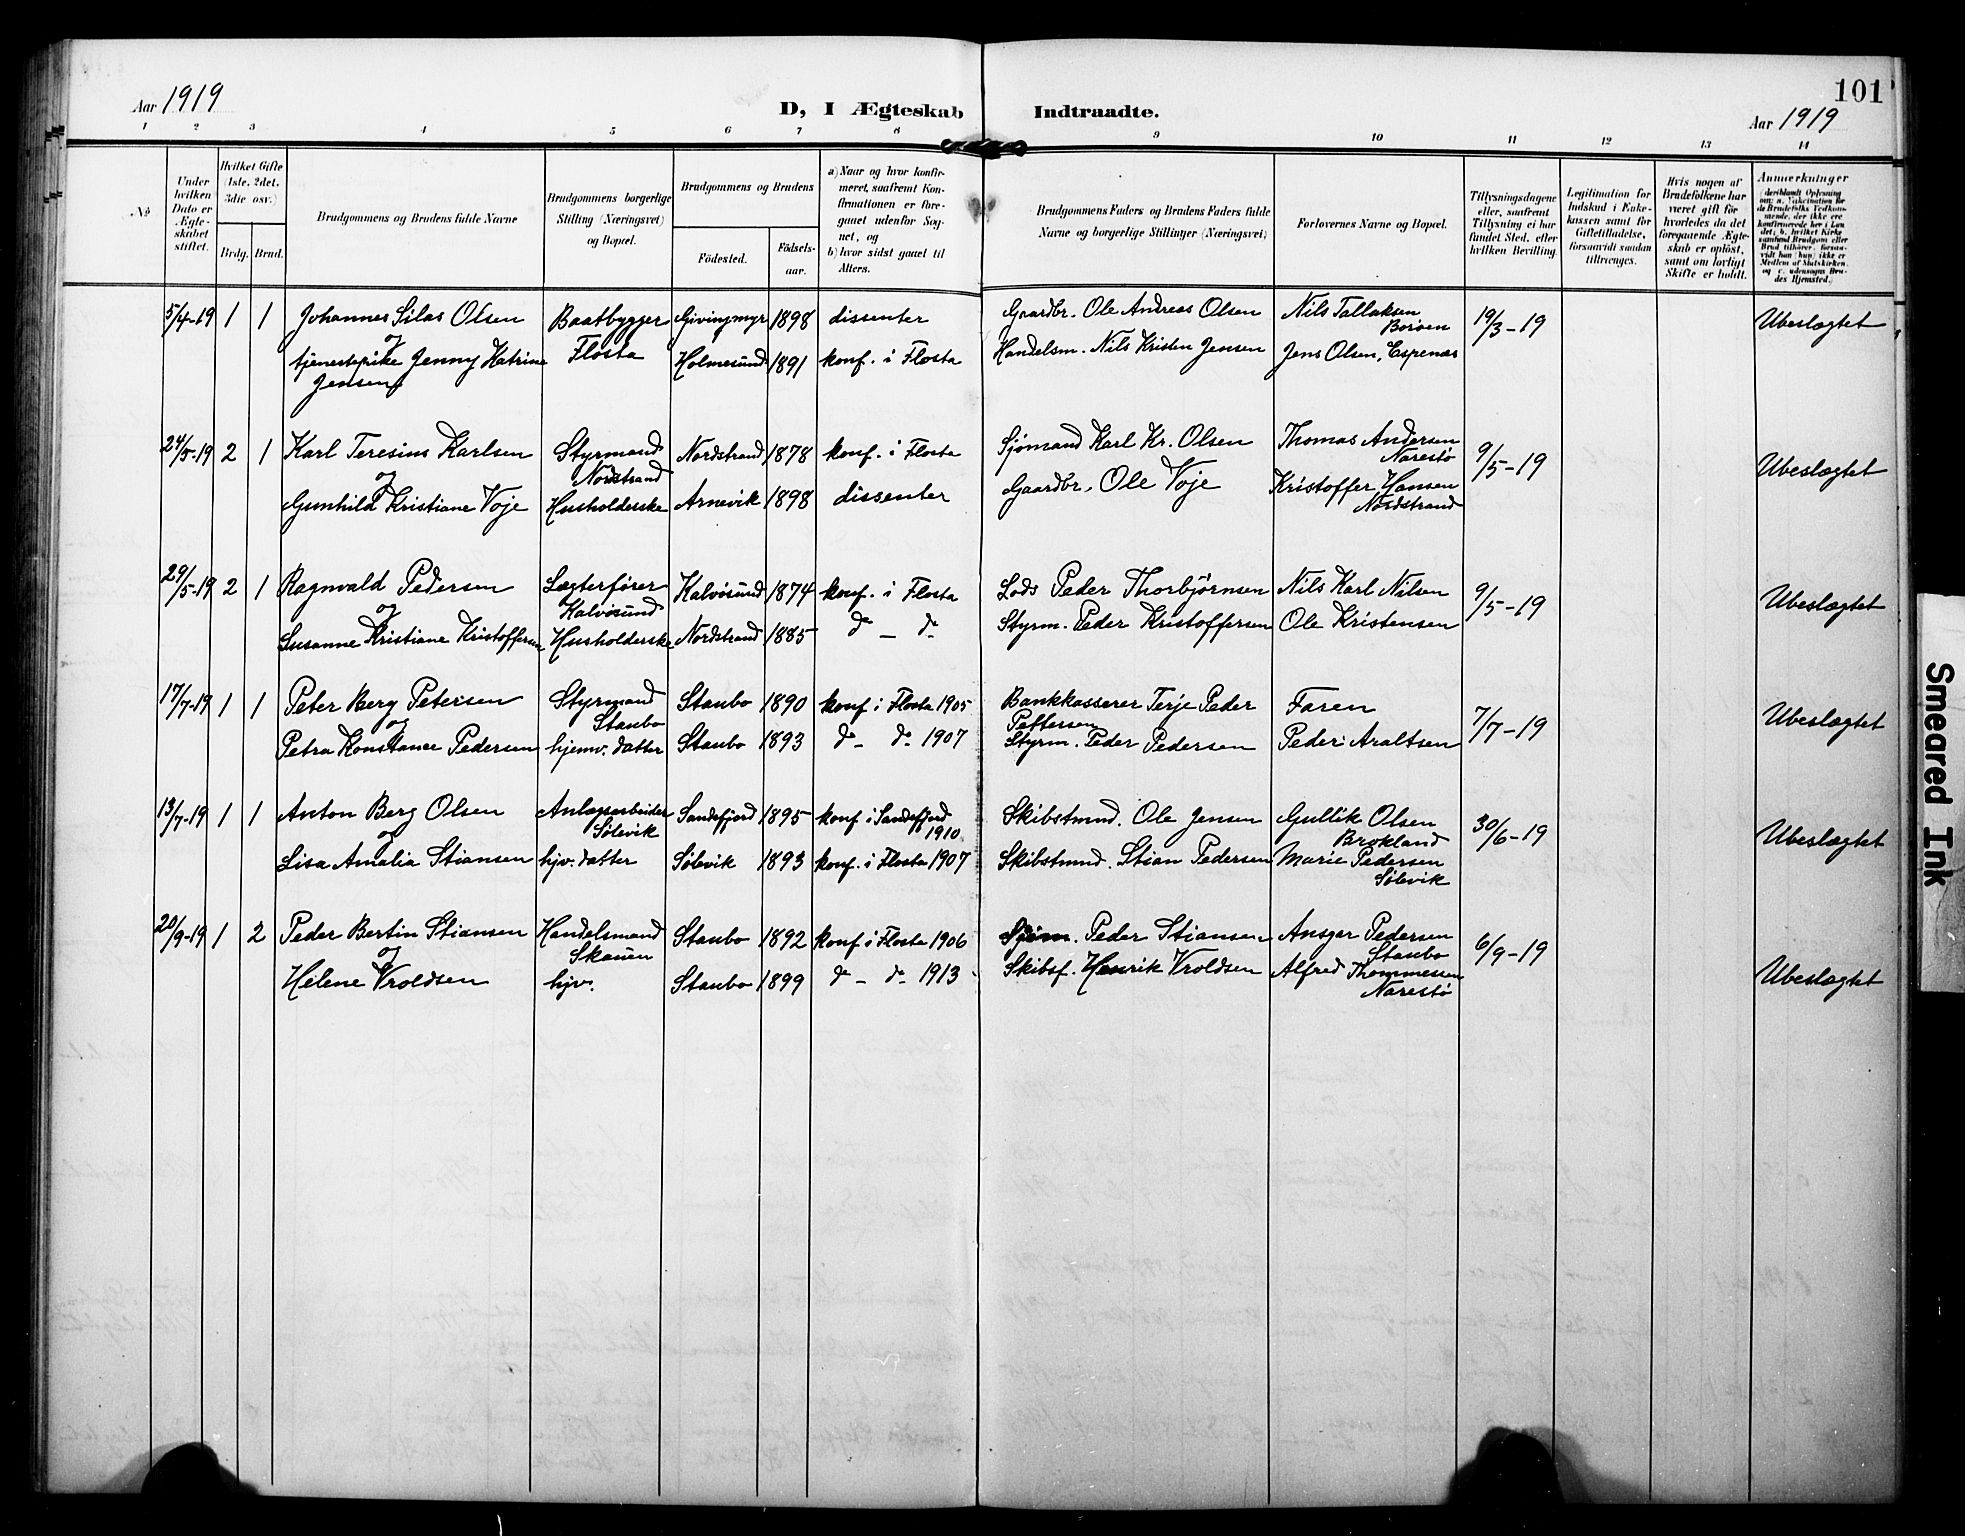 101
Aar 1919
D, I Ægteskab Indtraadte.
Aar 1919
1 2 3 4 5 6 7 8 9 10 11 12 13 14
No
Under hvilken Dato er Ægteskabet stiftet.
Hvilket Gifte (1ste, 2det, 3die osv.)
Brdg. Brud.
Brudgommens og Brudens fulde Navne
Brudgommens borgerlige Stilling (Næringsvei) og Bopæl.
Brudgommens og Brudens
Födested.
Födsels-aar.
a) Naar og hvor konfirmeret, saafremt Konfirmationen er foregaaet udenfor Sognet, og
b) hvor sidst gaaet til Alters.
Brudgommens Faders og Brudens Faders fulde Navne og borgerlige Stillinger (Næringsvei)
Forlovernes Navne og Bopæl.
Tillysningsdagene eller, saafremt Tillysning ei har fundet Sted, efter hvilken Bevilling.
Legitimation for Indskud i Enkekassen samt for Giftetilladelse, forsaavidt saadan tiltrænges.
Hvis nogen af Brudefolkene har været gift för hvorledes da det foregaaende Ægteskab er oplöst, samt om lovligt Skifte er holdt.
Anmerkninger (deriblandt Oplysning om: a. Vakcination for de Brudefolks Vedkommende, der ikke ere konfirmerede her i Landet; b. hvilket Kirkesamfund Brudgom eller Brud tilhører, forsaavidt han (hun) ikke er Medlem af Statskirken, og c. udensogns Brudes Hjemsted.)
5/4-19 1 1 Johannes Silas Olsen Baatbygger Givingmyr 1898 dissenter Gaardbr. Ole Andreas Olsen Nils Tallaksen 19/3-19 Ubeslægtet
og Flosta Borøen
tjenestepike Jenny Katrine Holmesund 1891 konf. i Flosta Handelsm. Nils Kristen Jensen Jens Olsen, Espenæs
Jensen
24/5-19 2 1 Karl Teresius Karlsen Styrmand Nordstrand 1878 konf. i Flosta Sjømand Karl Kr. Olsen Thomas Andersen 9/5-19 Ubeslægtet
og Nordstrand Narestø
Gunhild Kristiane Voje Husholderske Arnevik 1898 dissenter Gaardbr. Ole Voje Kristoffer Hansen
Nordstrand
29/5-19 2 1 Ragnvald Pedersen Lægterfører Kalvøsund 1874 konf. i Flosta Lods Peder Thorbjørnsen Nils Karl Nilsen 9/5-19 Ubeslægtet
og Kalvøsund
Susanne Kristiane Kristoffersen Husholderske Nordstrand 1885 do - do Styrm. Peder Kristoffersen Ole Kristensen
17/7-19 1 1 Peter Berg Petersen Styrmand Staubo 1890 konf i Flosta 1905 Bankkasserer Terje Peder Faren 7/7-19 Ubeslægtet
og Staubo
Petra Konstance Pedersen hjemv. datter Staubo 1893 do - do 1907 Styrm. Peder Pedersen Peder Araltsen
13/7-19 1 1 Anton Berg Olsen Anlægsarbeider Sandefjord 1895 konf i Sandefjord Skibstmnd. Ole Jensen Gullik Olsen 30/6-19 Ubeslægtet
og Sølevik 1910 Brokland
Lisa Amalia Stiansen hjv. datter Sølevik 1893 konf. i Flosta 1907 Skibstmnd. Stian Pedersen Marie Pedersen
Sølevik
20/9-19 1 2 Peder Bertin Stiansen Handelsmand Staubo 1892 konf i Flosta 1906 Sjøm. Peder Stiansen Ansgar Pedersen 6/9-19 Ubeslægtet
og Skauen Staubo
Helene Vroldsen hjv. Staubo 1899 do - do 1913 Skibsf. Henrik Vroldsen Alfred Thommesen
Narestø
Smeared Ink